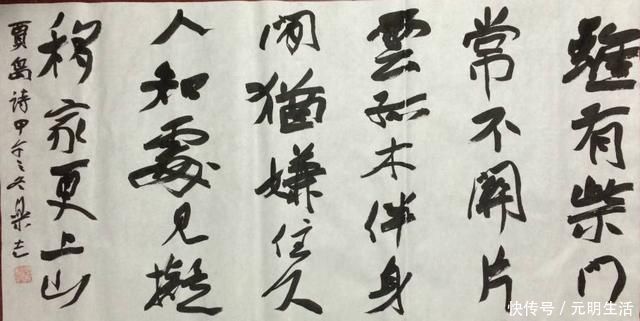 雖有柴門
常不關片
雲孤木伴身
閒猶嫌住久
人知處見擬
移家更上山
賈島詩甲午之冬
快传号/元明生活